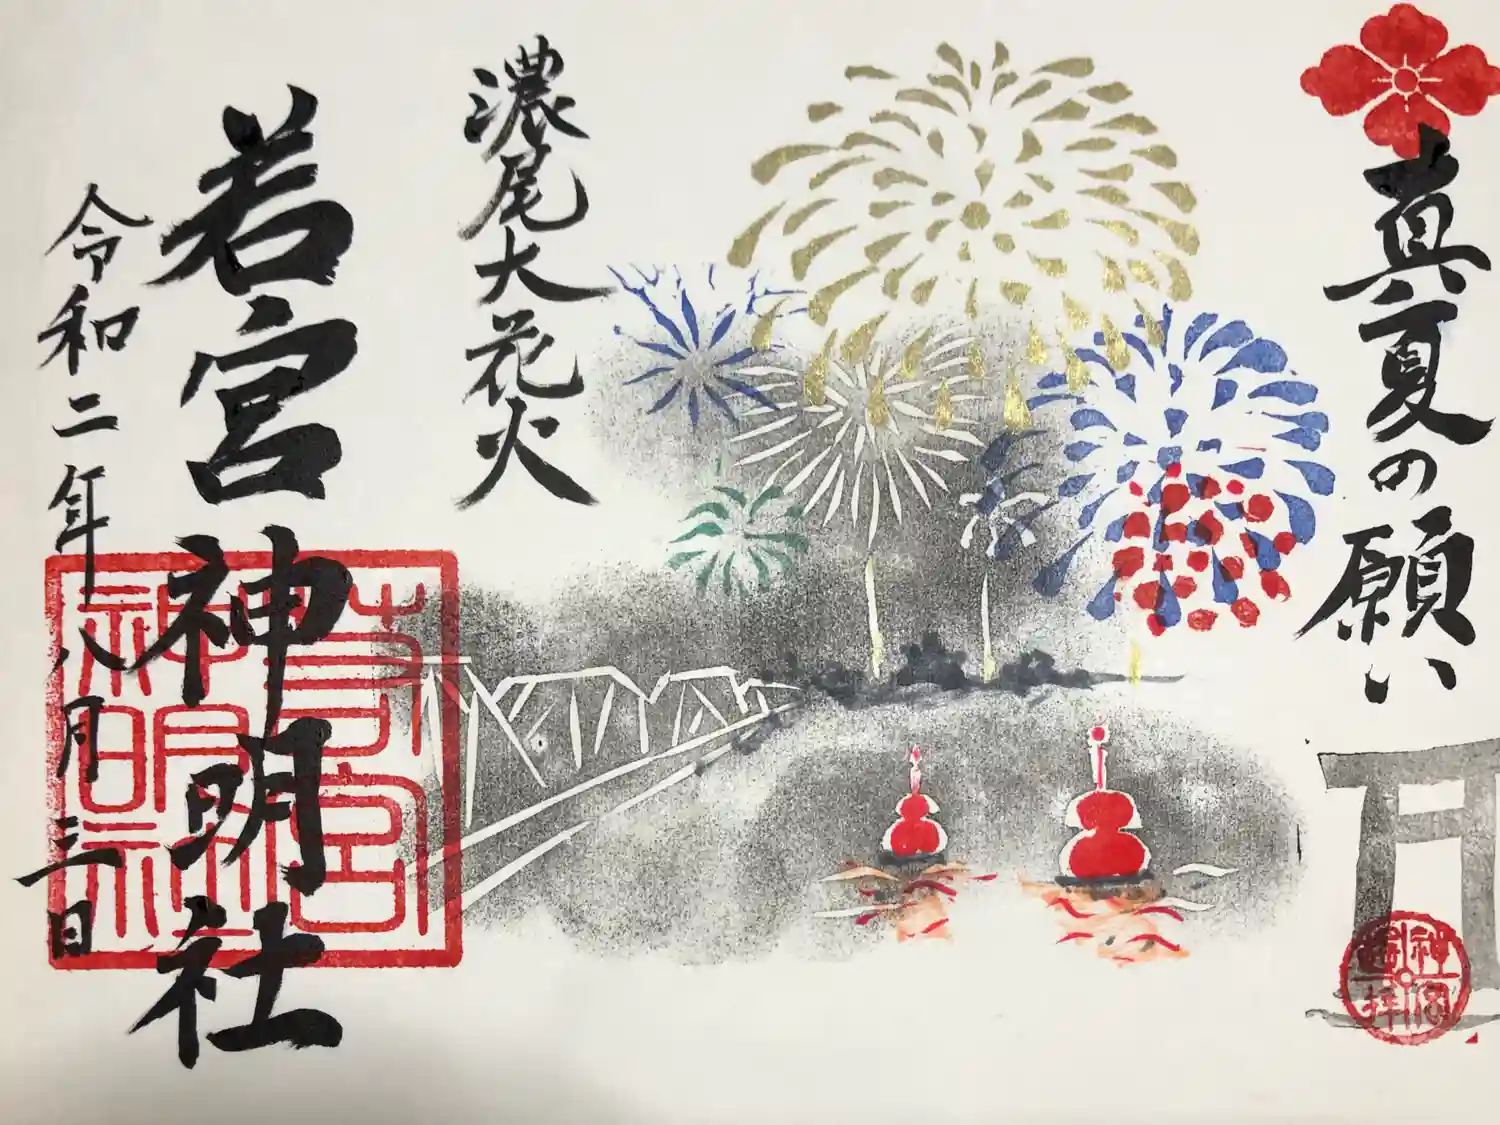 真夏の願い
濃尾大花火
若宮神明社
令和二年八月三日
若宮
神明社